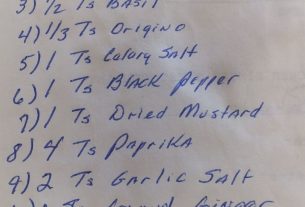 3) 1/2 Ts BASIL
4) 1/3 Ts Origino
5) 1 Ts Celary Salt
6) 1 Ts BLACK Pepper
7) 1 Ts Dried Mustard
8) 4 Ts PAprikA
9) 2 Ts GArlic SAlt
Ts Ground Ginger